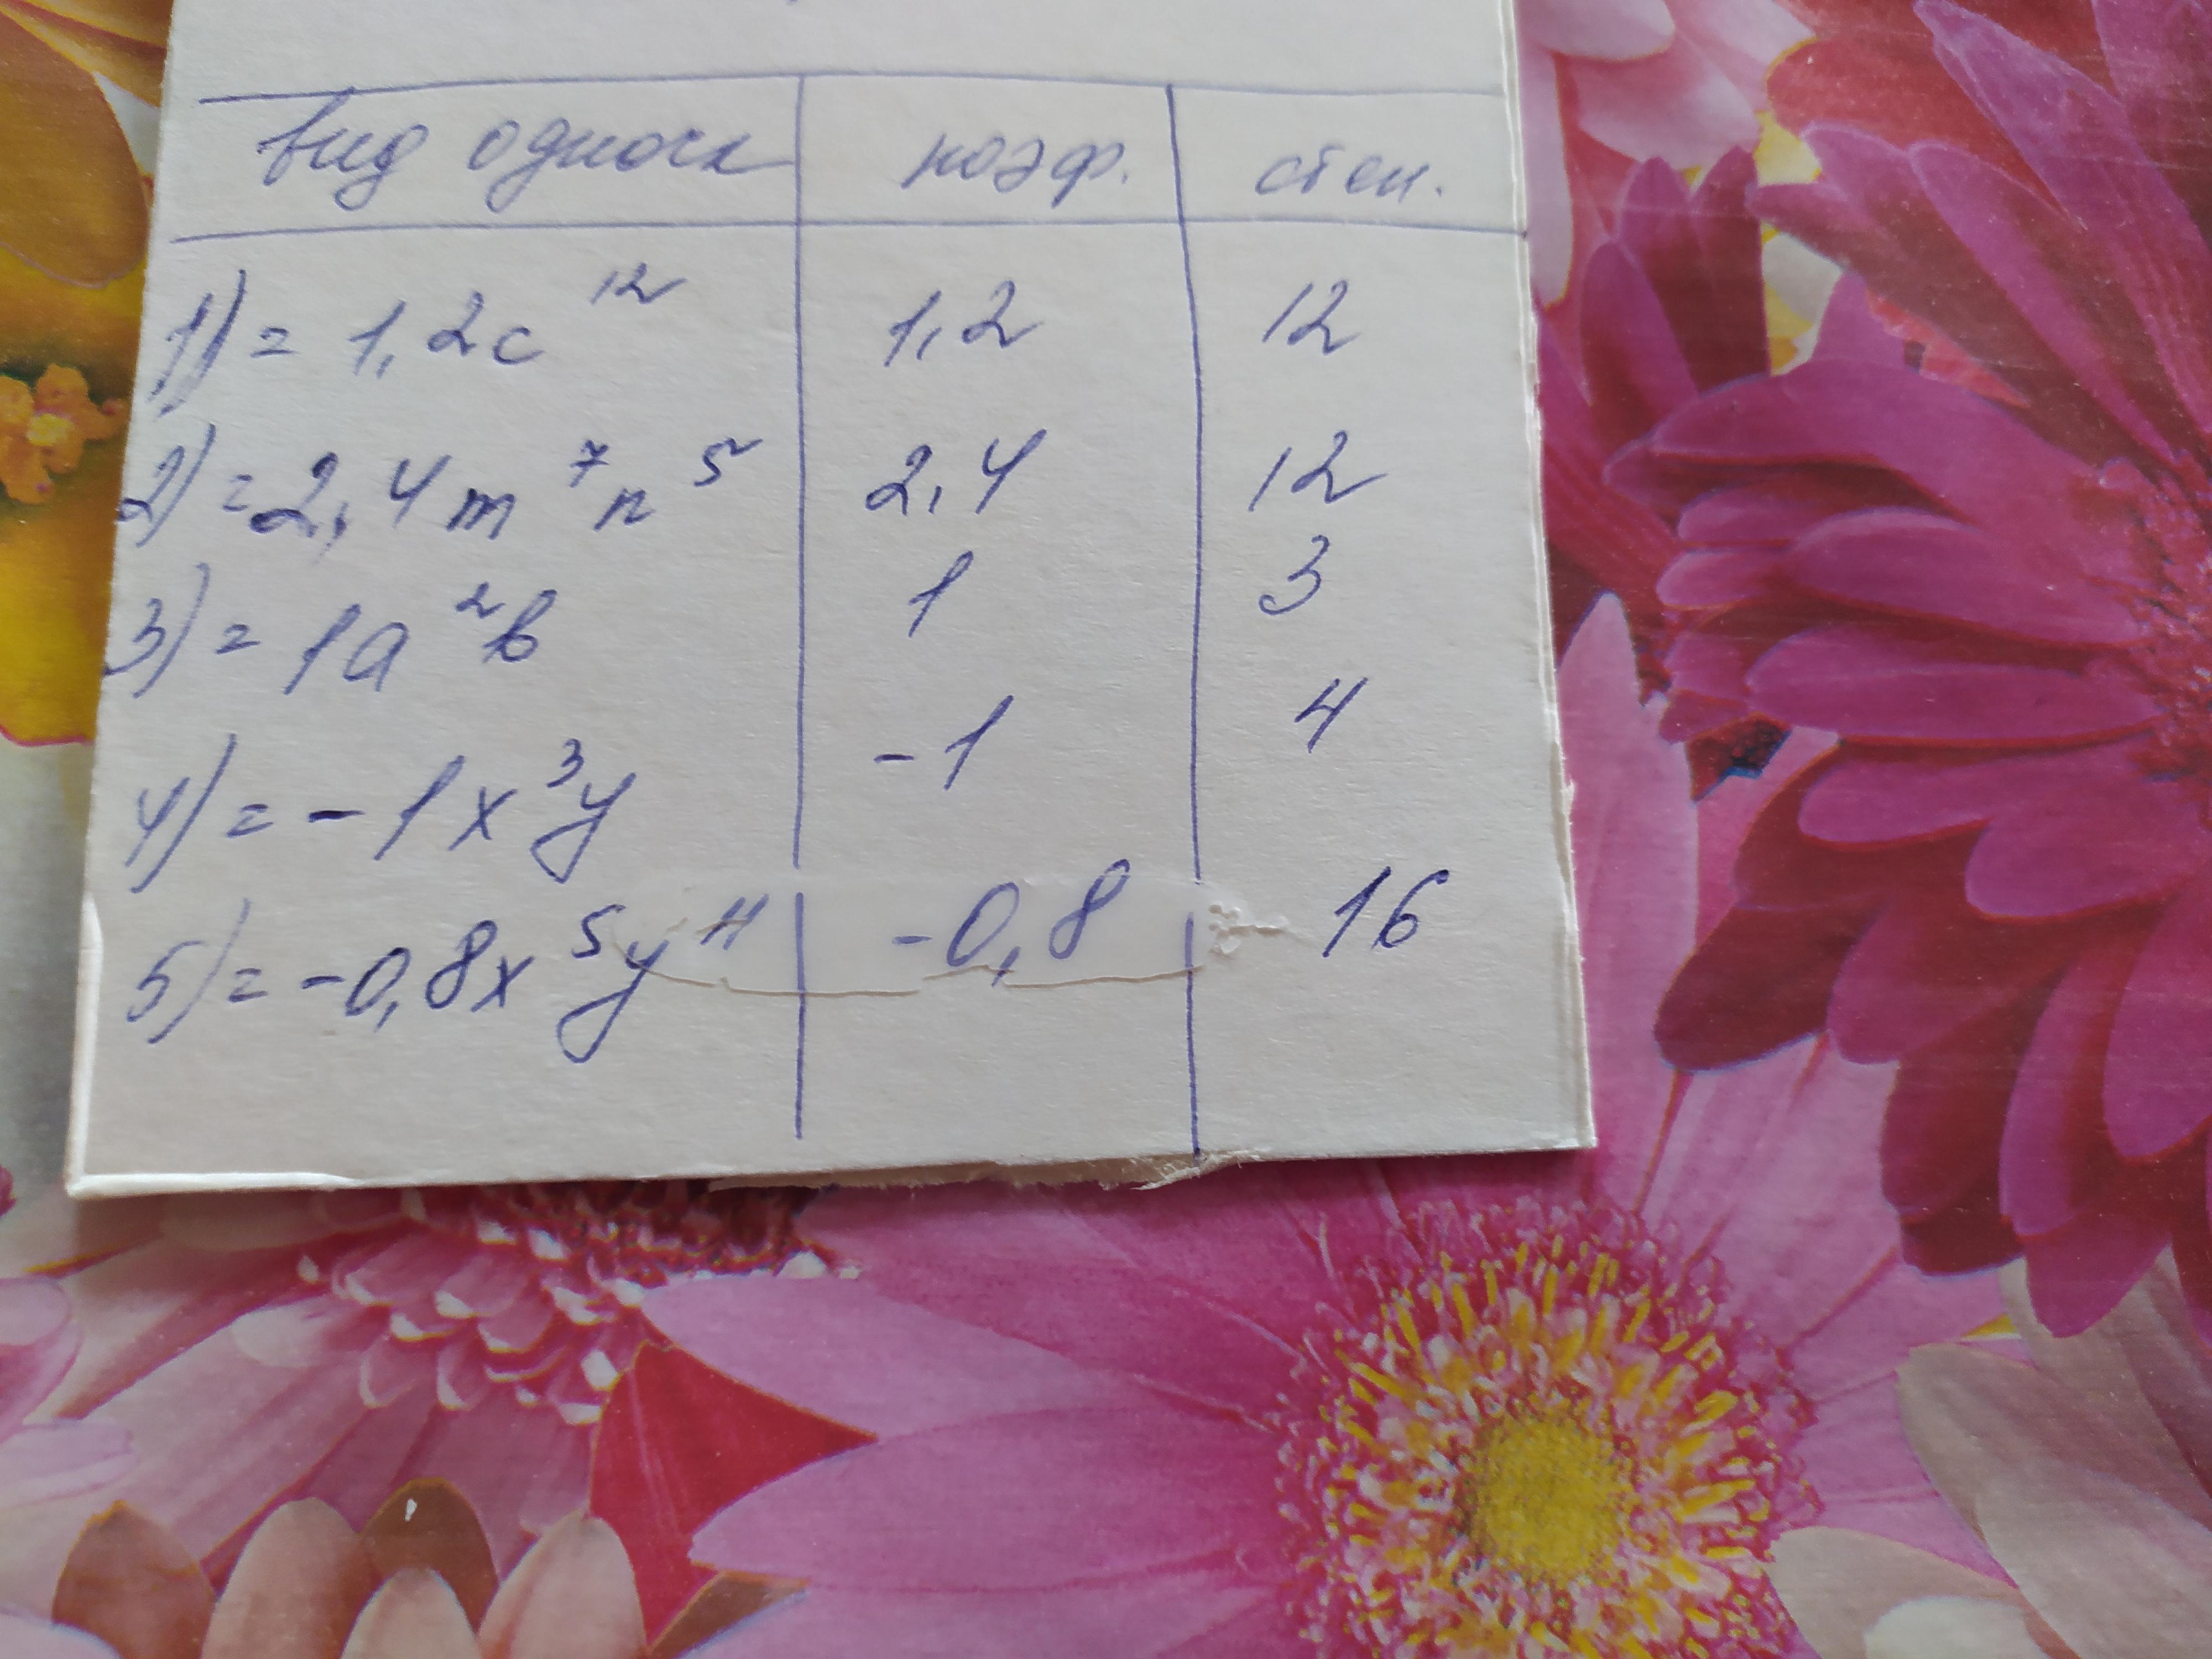 вид одночл коэф. степ.
1) = 1,2c¹² 1,2 12
2) = 2,4m⁷n⁵ 2,4 12
3) = 1a²b 1 3
4) = -1x³y -1 4
5) = -0,8x⁵y¹¹ -0,8 16